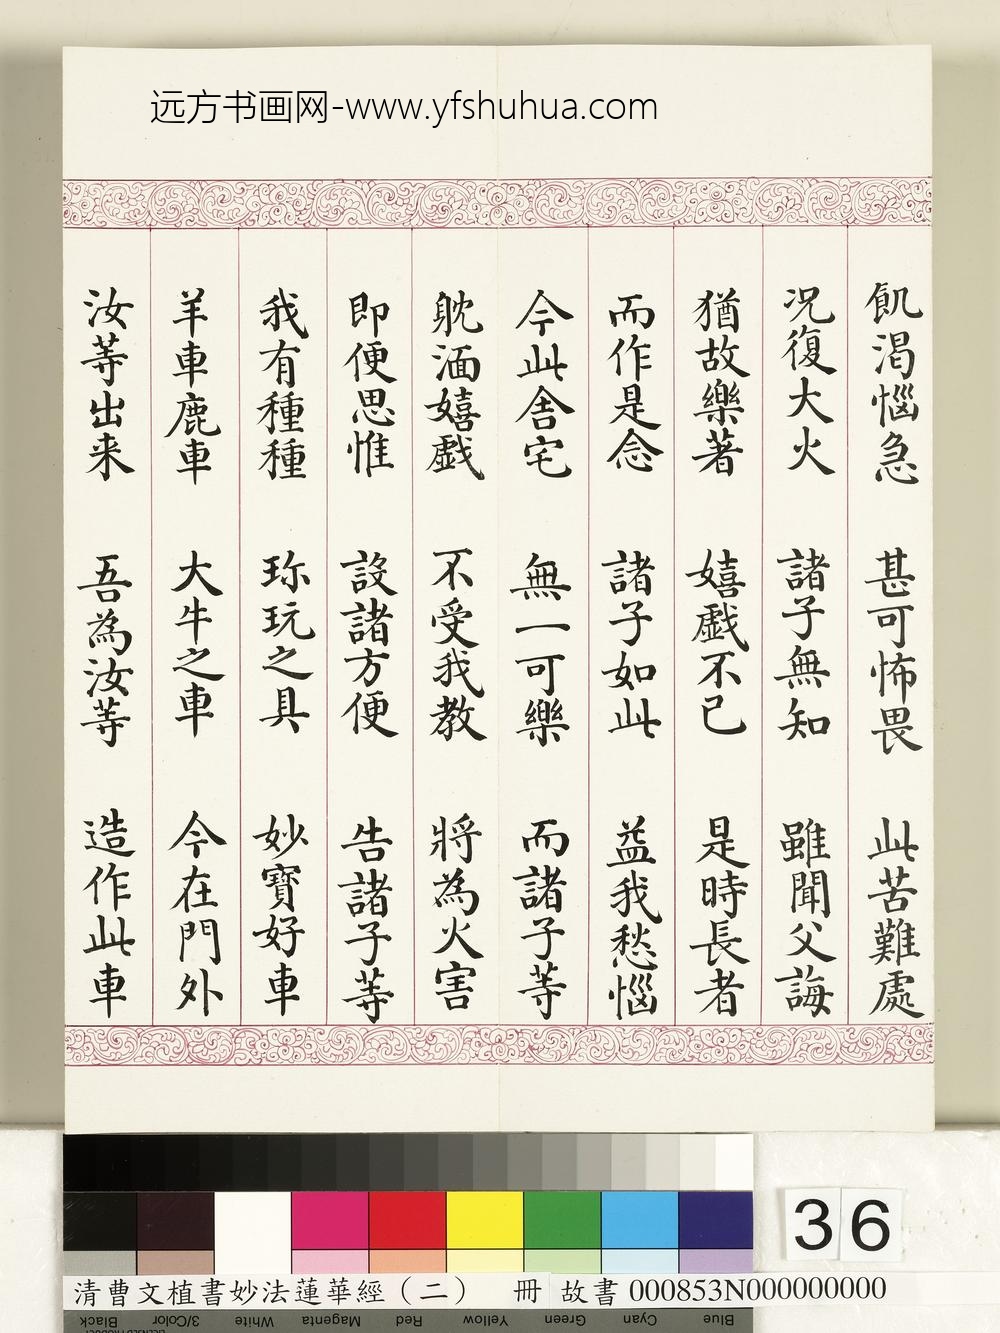 远方书画网-www.yfshuhua.com
飢渴惱急 甚可怖畏 此苦難處
況復大火 諸子無知 雖聞父誨
猶故樂著 嬉戲不已 是時長者
而作是念 諸子如此 益我愁惱
今此舍宅 無一可樂 而諸子等
耽湎嬉戲 不受我教 將為火害
即便思惟 設諸方便 告諸子等
我有種種 珎玩之具 妙寶好車
羊車鹿車 大牛之車 今在門外
汝等出来 吾為汝等 造作此車
36
清曹文植書妙法蓮華經（二） 冊 故書 000853N000000000
Black 3/Color White Magenta Red Yellow Green Cyan Blue